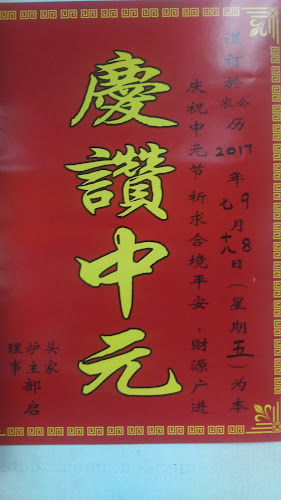 谨订於农公历2017年七9月十八8日（星期五）为本
庆祝中元节祈求合境平安，财源广进
慶讚中元
头家
炉主
理事
部启